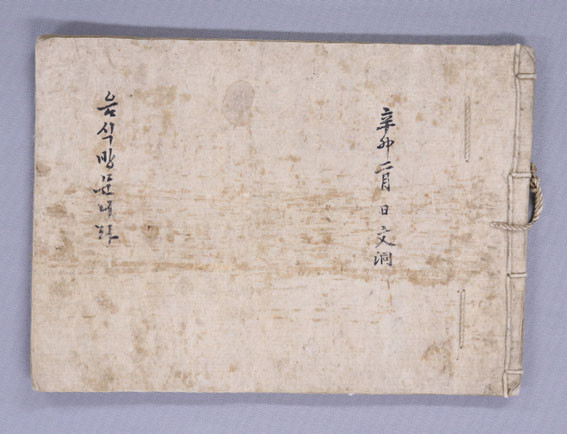 辛卯二月 日 文洞
음식방문니라